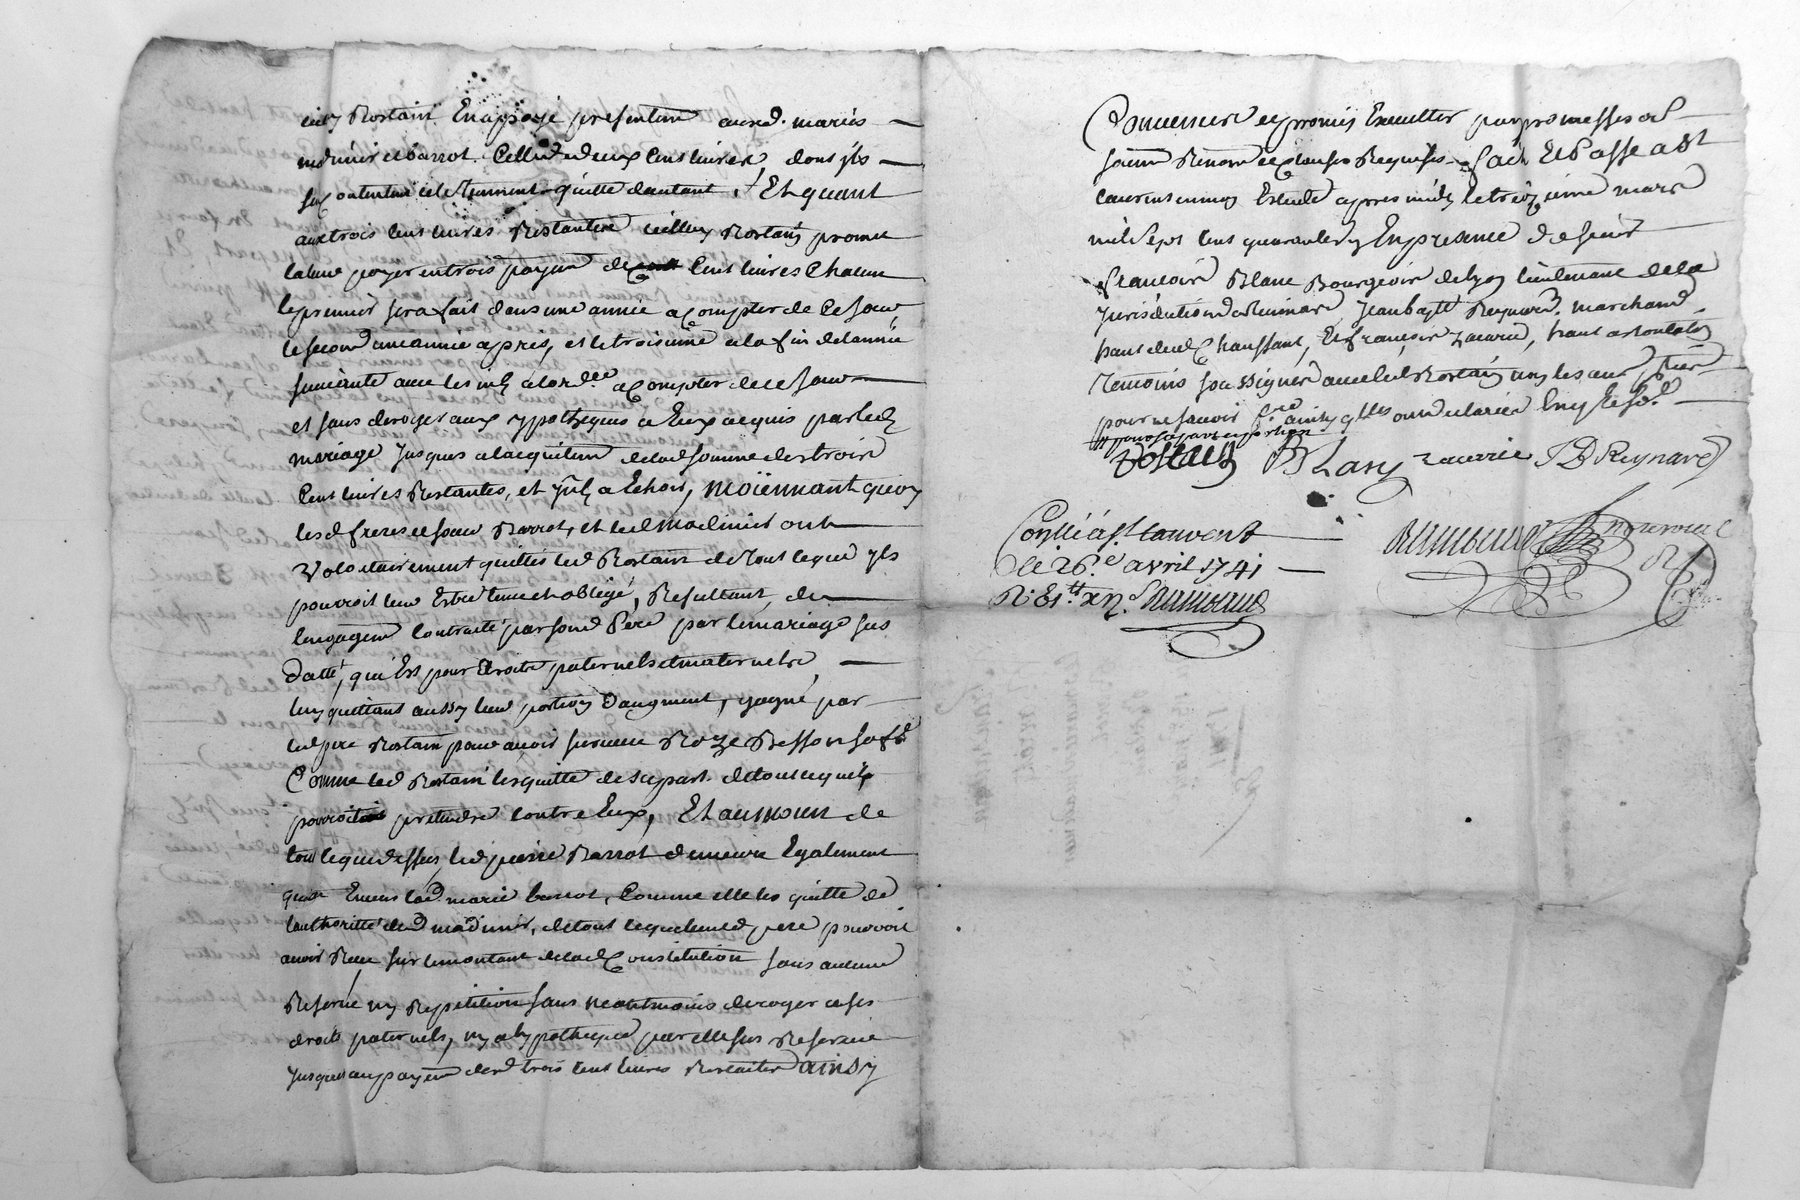 Rostain En a payé presentem ausd. mariés
madinier et barrot. Celle de deux Cent livres dont jls
se contentent et le tiennent quitte d'autant. Et quant
aux trois Cent livres Restantes icelluy Rostain promet
la leur payer en trois payem de Cent livres Chacun
le premier sera fait dans une année a Compter de Ce Jour,
le second une année après, et le troisieme a la fin de l'année
suivante avec les a Compter de ce Jour
et sans deroger aux ypotheques a Eux acquis par led
mariage Jusques a lacquittem de lad somme des trois
Cent livres Restantes, et a Echoir, moiennant quoy
lesd freres et soeur Barrot, et led Madinier ont
volontairement quittés led Rostain de tout ce que jls
pourroit leur Estre tenu et obligé, Resultant de
lengagem Contracté par sond Pere par le mariage sus
datté, qui Est pour droits paternels et maternels,
luy quittant aussy leur portion d'augment, gagné par
led pere Rostain pour avoir survecu Roze Besson sa fe
Comme led Rostain les quitte de sa part de tout ce quil
pourroit pretendre contre Eux, Et au moien de
tout ce que dessus led pierre Barrot demeure Egalement
quitte Envers lad. marie barrot, Comme elle les quitte de
l'authoritté dud madinier, de tout ce que leurd pere pouvoit
avoir Receu sur le montant de lad Constitution sans aucune
Reserve ny Repetition sans neantmoins deroger a ses
droits paternels, ny a l'ypotheque par elle sus Reservée
Jusques au payem desd trois Cent livres Restantes ainsy
Convenu et promis Executter par promesses
serm Renon et Clauses Requises. Fait Et Passé a St
Laurens en mon Estude apres midy le treizieme mars
mil sept Cent quarante un En presence de sieur
francois Blanc Bourgeois de Lyon lieutenant de la
Jurisdiction de Rivirie, Jean bapte Reynard. marchand
hant dud Chaussant, Et francois Zacarie, hant
Temoins soussignés avec led Rostain non les autres
pour ne savoir Ecrire ainsy qlles ont declarées Enquis
Rostain Blanc zacarie J B Reynard
Conllé a St Laurent
le 26e avril 1741
R. Et